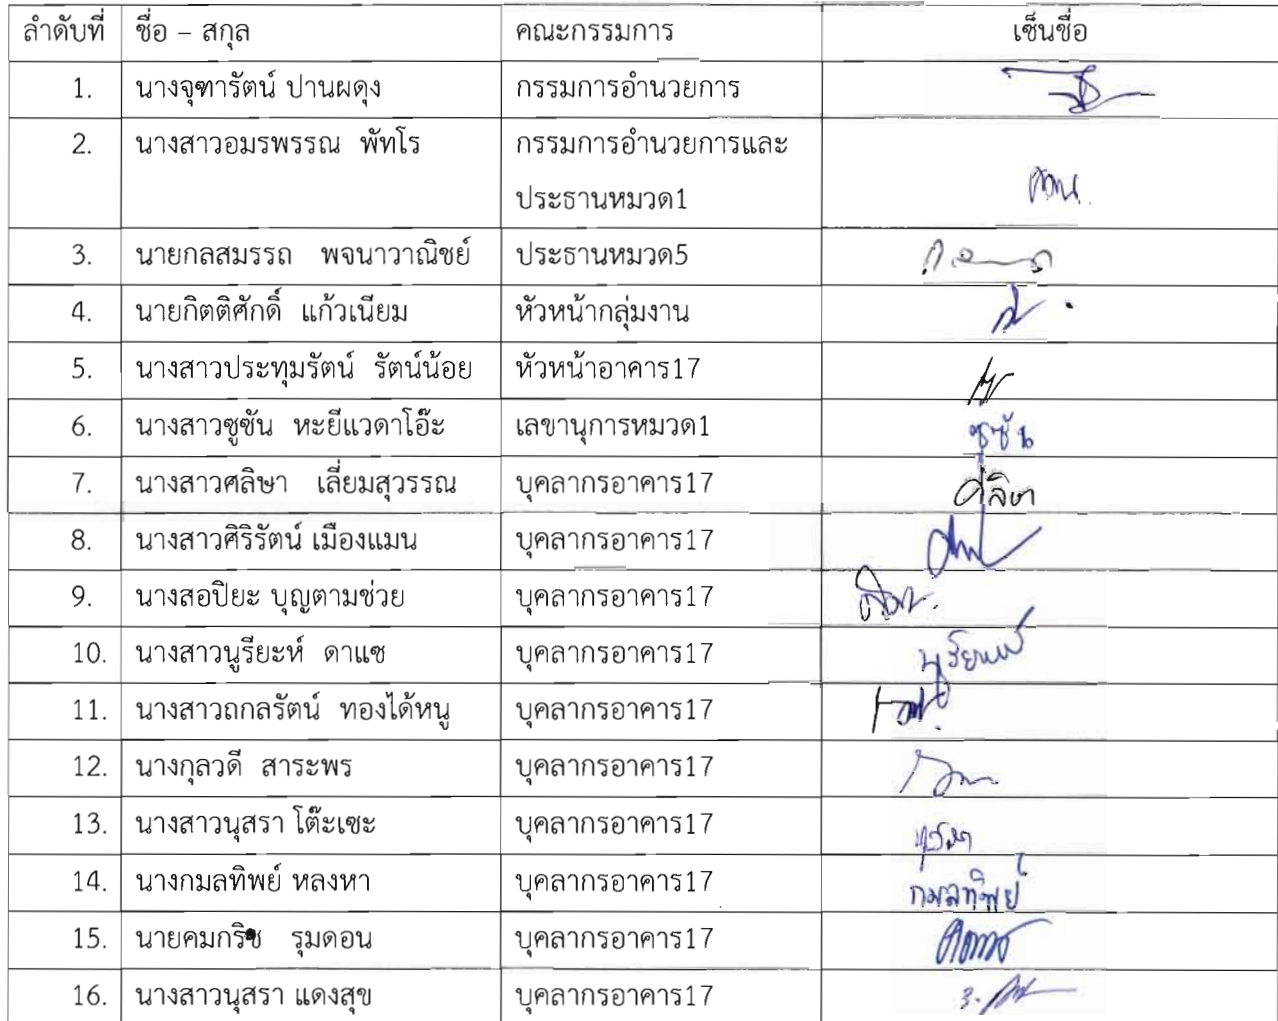 ลำดับที่ ชื่อ – สกุล คณะกรรมการ เซ็นชื่อ
1. นางจุฑารัตน์ ปานผดุง กรรมการอำนวยการ
2. นางสาวอมรพรรณ พัทโร กรรมการอำนวยการและ
ประธานหมวด1
3. นายกลสมรรถ พจนาวาณิชย์ ประธานหมวด5
4. นายกิตติศักดิ์ แก้วเนียม หัวหน้ากลุ่มงาน
5. นางสาวประทุมรัตน์ รัตน์น้อย หัวหน้าอาคาร17
6. นางสาวซูซัน หะยีแวดาโอ๊ะ เลขานุการหมวด1 ซูซัน
7. นางสาวศลิษา เลี่ยมสุวรรณ บุคลากรอาคาร17 ศลิษา
8. นางสาวศิริรัตน์ เมืองแมน บุคลากรอาคาร17
9. นางสอปิยะ บุญตามช่วย บุคลากรอาคาร17
10. นางสาวนูรียะห์ ดาแซ บุคลากรอาคาร17 นูรียะห์
11. นางสาวถกลรัตน์ ทองได้หนู บุคลากรอาคาร17
12. นางกุลวดี สาระพร บุคลากรอาคาร17
13. นางสาวนุสรา โต๊ะเซะ บุคลากรอาคาร17 นุสรา
14. นางกมลทิพย์ หลงหา บุคลากรอาคาร17 กมลทิพย์
15. นายคมกริช รุมดอน บุคลากรอาคาร17
16. นางสาวนุสรา แดงสุข บุคลากรอาคาร17